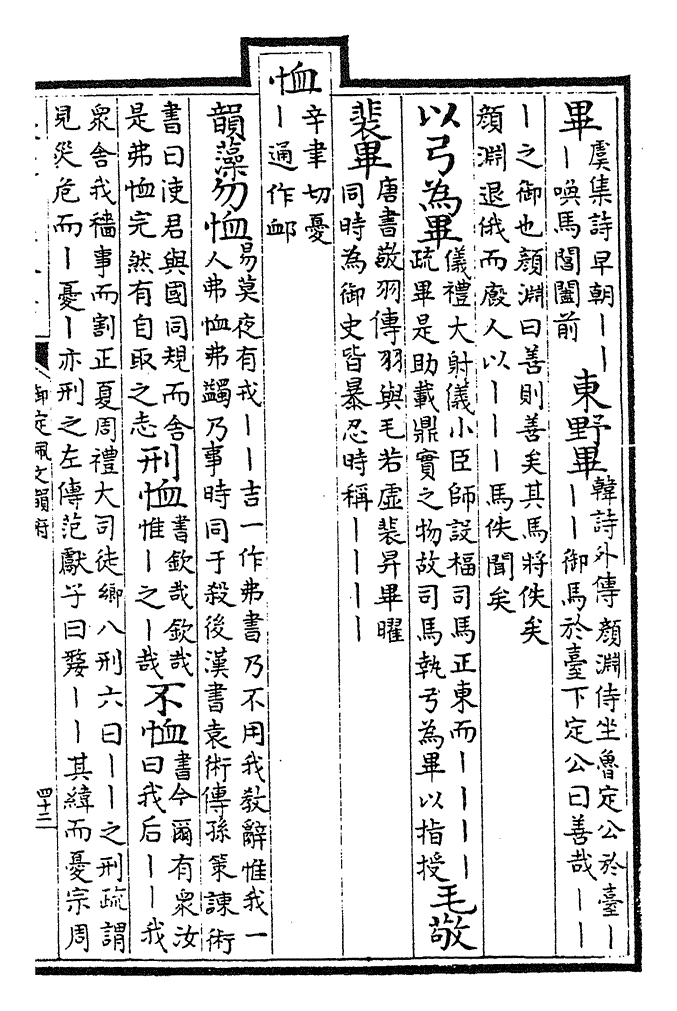 畢 虞集詩早朝丨丨
丨喚馬閶闔前
東野畢 韓詩外傳顏淵侍坐魯定公於臺丨
丨丨御馬於臺下定公曰善哉丨丨
丨之御也顏淵曰善則善矣其馬將佚矣
顏淵退俄而廄人以丨丨丨馬佚聞矣
以弓為畢 儀禮大射儀小臣師設楅司馬正東而丨丨丨丨
疏畢是助載鼎實之物故司馬執弓為畢以指授
毛敬
裴畢 唐書敬羽傳羽與毛若虛裴昇畢曜
同時為御史皆暴忍時稱丨丨丨丨
恤 辛聿切憂
丨通作卹
韻藻勿恤 易莫夜有戎丨丨吉一作弗書乃不用我教辭惟我一
人弗恤弗蠲乃事時同于殺後漢書袁術傳孫策諫術
書曰使君與國同規而舍
是弗恤完然有自取之志
刑恤 書欽哉欽哉
惟丨之丨哉
不恤 書今爾有眾汝
曰我后丨丨我
眾舍我穡事而割正夏周禮大司徒鄉八刑六曰丨丨之刑疏謂
見災危而丨憂丨亦刑之左傳范獻子曰嫠丨丨其緯而憂宗周
御定佩文韻府
四十二